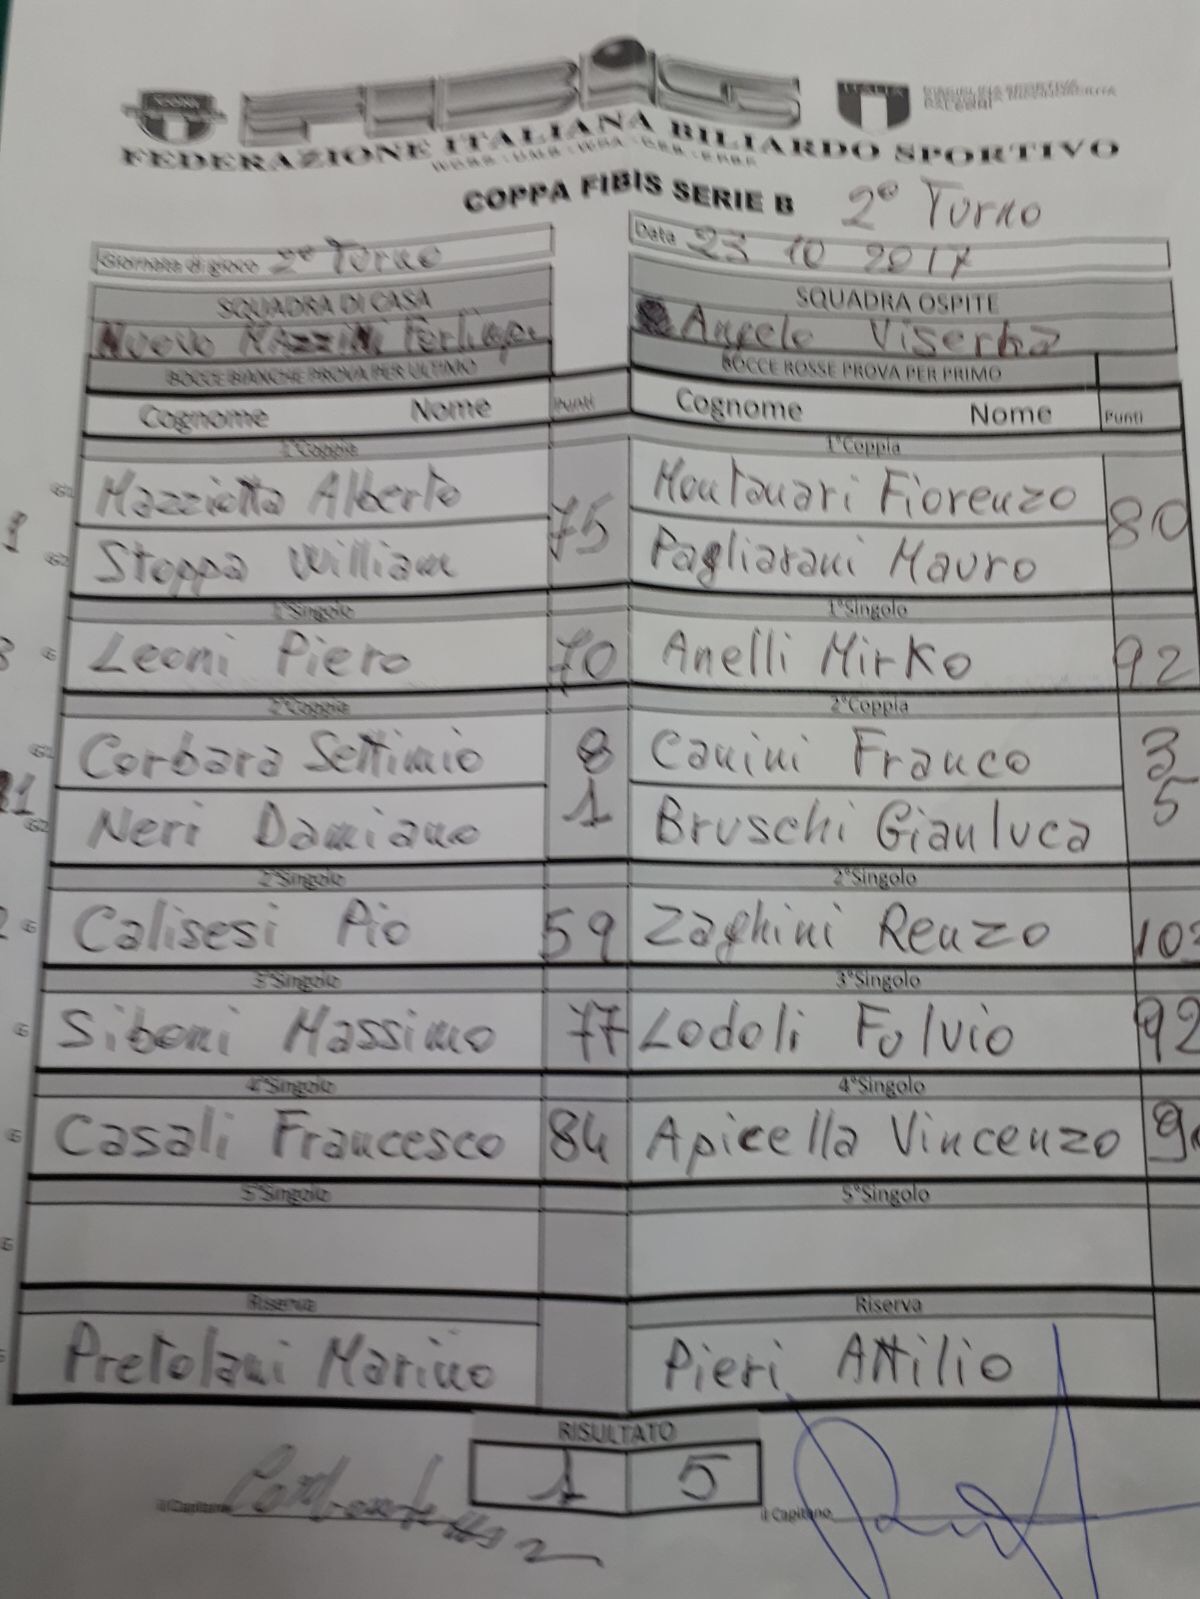 FIBIS
FEDERAZIONE ITALIANA BILIARDO SPORTIVO
COPPA FIBIS SERIE B 2° Turno
Giornata di gioco 2° Turno Data 23 10 2017
SQUADRA DI CASA SQUADRA OSPITE
Nuovo Mazzini Angelo Viserba
BOCCE BIANCHE PROVA PER ULTIMO BOCCE ROSSE PROVA PER PRIMO
Cognome Nome Punti Cognome Nome Punti
1°Coppia 1°Coppia
G1 Mazziotta Alberto 75 Montanari Fiorenzo 80
G2 Stoppa William Pagliarani Mauro
1°Singolo 1°Singolo
G Leoni Piero 70 Anelli Mirko 92
2°Coppia 2°Coppia
G1 Corbara Settimio 8 Canini Franco 3
G2 Neri Damiano 1 Bruschi Gianluca 5
2°Singolo 2°Singolo
G Calisesi Pio 59 Zaghini Renzo 10
3°Singolo 3°Singolo
G Siboni Massimo 77 Lodoli Fulvio 92
4°Singolo 4°Singolo
G Casali Francesco 84 Apicella Vincenzo 9
5°Singolo 5°Singolo
G
Riserva Riserva
Pretolani Marino Pieri Attilio
RISULTATO
1 5
il Capitano il Capitano